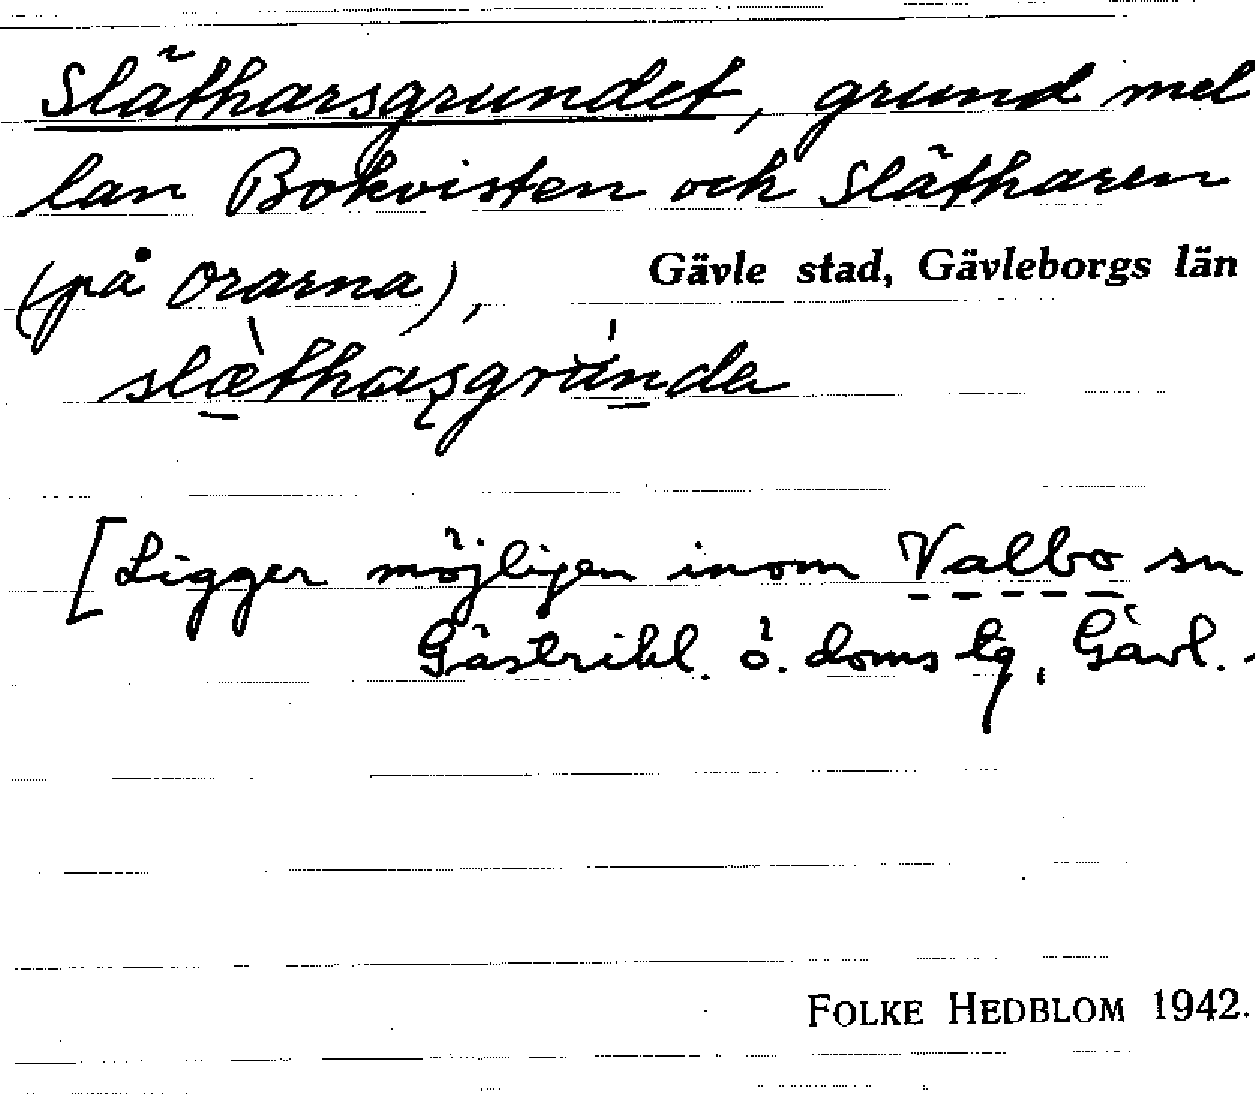 Slätharsgrundet, grund mel
lan Bokvisten och Slätharen
(på Orarna),
Gävle stad, Gävleborgs län
slæ̀thaʂgrúnda
[Ligger möjligen inom Valbo sn
Gästrikl. ö. doms lg, Gävl.
FOLKE HEDBLOM 1942.